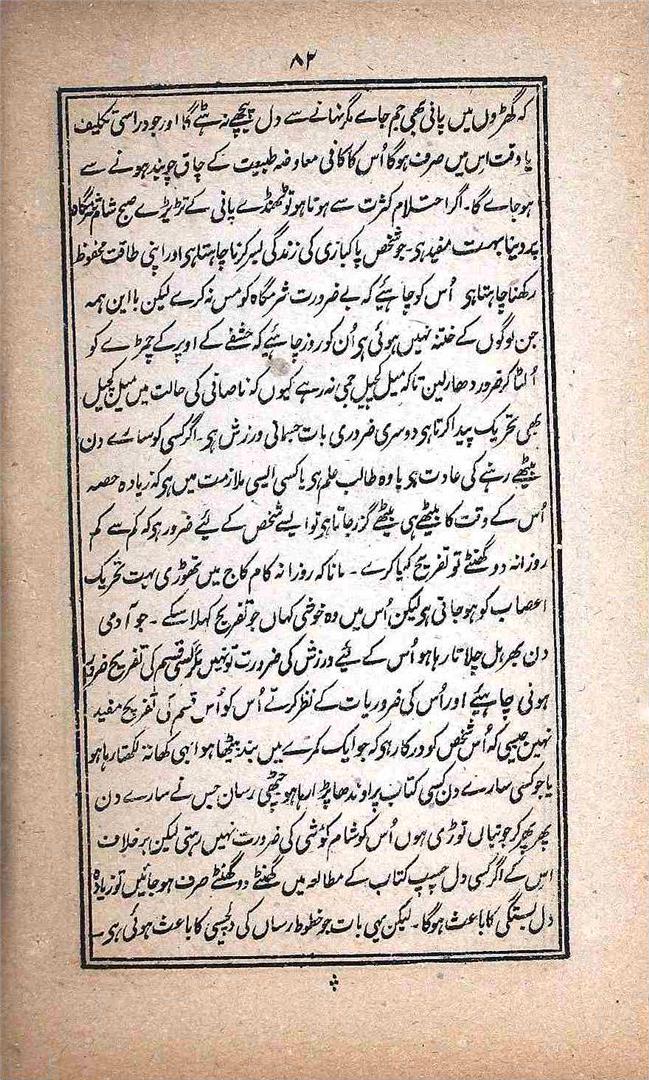 ۸۲
کہ گھڑوں میں پانی بھی جم جاے مگر نہانے سے دل پیچھے نہ ہٹے گا اور جو دراسی تکلیف
یا وقت اس میں صرف ہوگا اُس کا کافی معاوضہ طبیعت کے چاق چوبند ہونے سے
ہو جاے گا۔ اگر احتلام کثرت سے ہوتا ہو تو ٹھنڈے پانی کے تڑیڑے صبح شام شرمگاہ
پر دینا بہت مفید ہی۔ جو شخص پاکبازی کی زندگی بسر کرنا چاہتا ہی اور اپنی طاقت محفوظ
رکھنا چاہتا ہی اُس کو چاہیئے کہ بے ضرورت شرمگاہ کو مس نہ کرے لیکن با این ہمہ
جن لوگوں کے ختنہ نہیں ہوئی ہی اُن کو روز چاہیے کہ حشفے کے اوپر کے چمڑے کو
اُلٹا کر ضرور دھار لین تاکہ میل کچیل جمی نہ رہے کیوں کہ ناصافی کی حالت میں میل کچیل
بھی تحریک پیدا کرتا ہی دوسری ضروری بات جسمانی ورزش ہی۔ اگر کسی کو سارے دن
بیٹھے رہنے کی عادت ہی یا وہ طالب علم ہی یا کسی ایسی ملازمت میں ہو کہ زیادہ حصہ
اُس کے وقت کا بیٹھے ہی بیٹھے گزر جاتا ہو تو ایسے شخص کے لیئے ضرور ہو کہ کم سے کم
روزانہ دو گھنٹے تو تفریح کیا کرے۔ مانا کہ روزانہ کام کاج میں تھوڑی بہت تحریک
اعصاب کو ہو جاتی ہی لیکن اُس میں وہ خوشی کہاں جو تفریح کہلا سکے۔ جو آدمی
دن بھر ہل چلاتا رہا ہو اُس کے لیئے ورزش کی ضرورت تو نہیں مگر کسی قسم کی تفریح ضرور
ہونی چاہیئے اور اُس کی ضروریات کے نظر کرتے اُس کو اُس قسم کی تفریح مفید
نہیں جیسی کہ اُس شخص کو درکار ہو کہ جو ایک کمرے میں بند بیٹھا ہوا بہی کھاتہ لکھتا رہا ہو
یا جو کسی سارے دن کسی کتاب پر اوندھا پڑا رہا ہو چٹھی رسان جس نے سارے دن
پھر پھر کر جوتیاں توڑی ہوں اُس کو شام کو گشتی کی ضرورت نہیں رہتی لیکن برخلاف
اس کے اگر کسی دل چسپ کتاب کے مطالعہ میں گھنٹے دو گھنٹے صرف ہو جائیں تو زیادہ
دل بستگی کا باعث ہوگا۔ لیکن یہی بات جو خطوط رساں کی دلچسپی کا باعث ہوئی ہی۔